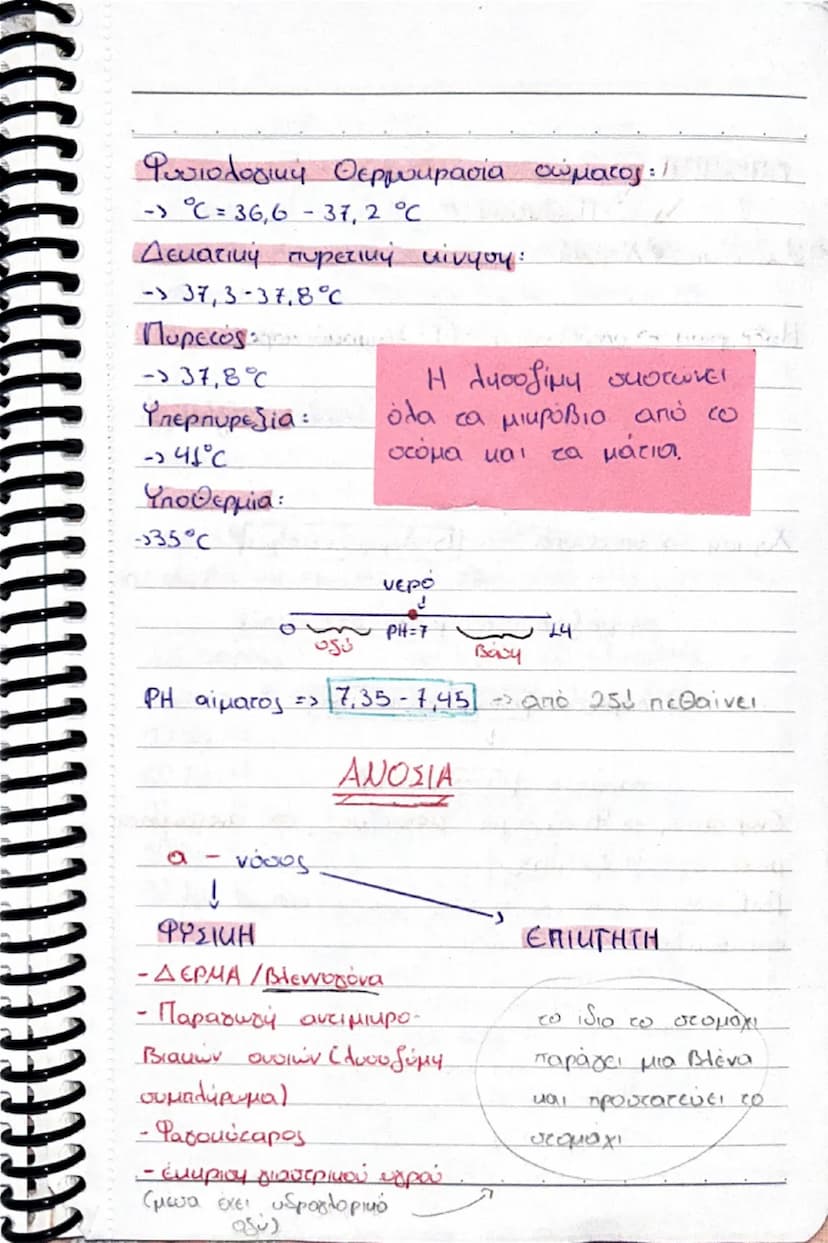 Φυσιολογική Θερμοκρασία σώματος:
-> °C = 36,6 - 37,2 °C
Δεκατική πυρετική κίνηση:
-> 37,3 - 37,8°C
Πυρετός
-> 37,8°C
Υπερπυρεξία:
-> 41°C
Υποθερμία:
->35°C
Η λυσοζίμη σκοτώνει
όλα τα μικρόβια από το
στόμα και τα μάτια.
νερό
0 PH=7 14
οξύ βάση
PH αίματος => 7,35 - 7,45 -> από 25↓ πεθαίνει
ΑΝΟΣΙΑ
α - νόσος
ΦΥΣΙΚΗ ΕΠΙΚΤΗΤΗ
- ΔΕΡΜΑ / Βλεννογόνα
- Παραγωγή αντιμικρο-
βιακών ουσιών (λυσοζύμη
συμπλήρωμα)
- Φαγοκύταρος
- έκκριση γαστερικού υγρού
(μέσα έχει υδροχλορικό
οξύ)
το ίδιο το στομάχι
παράγει μια βλένα
και προστατεύει το
στομάχι